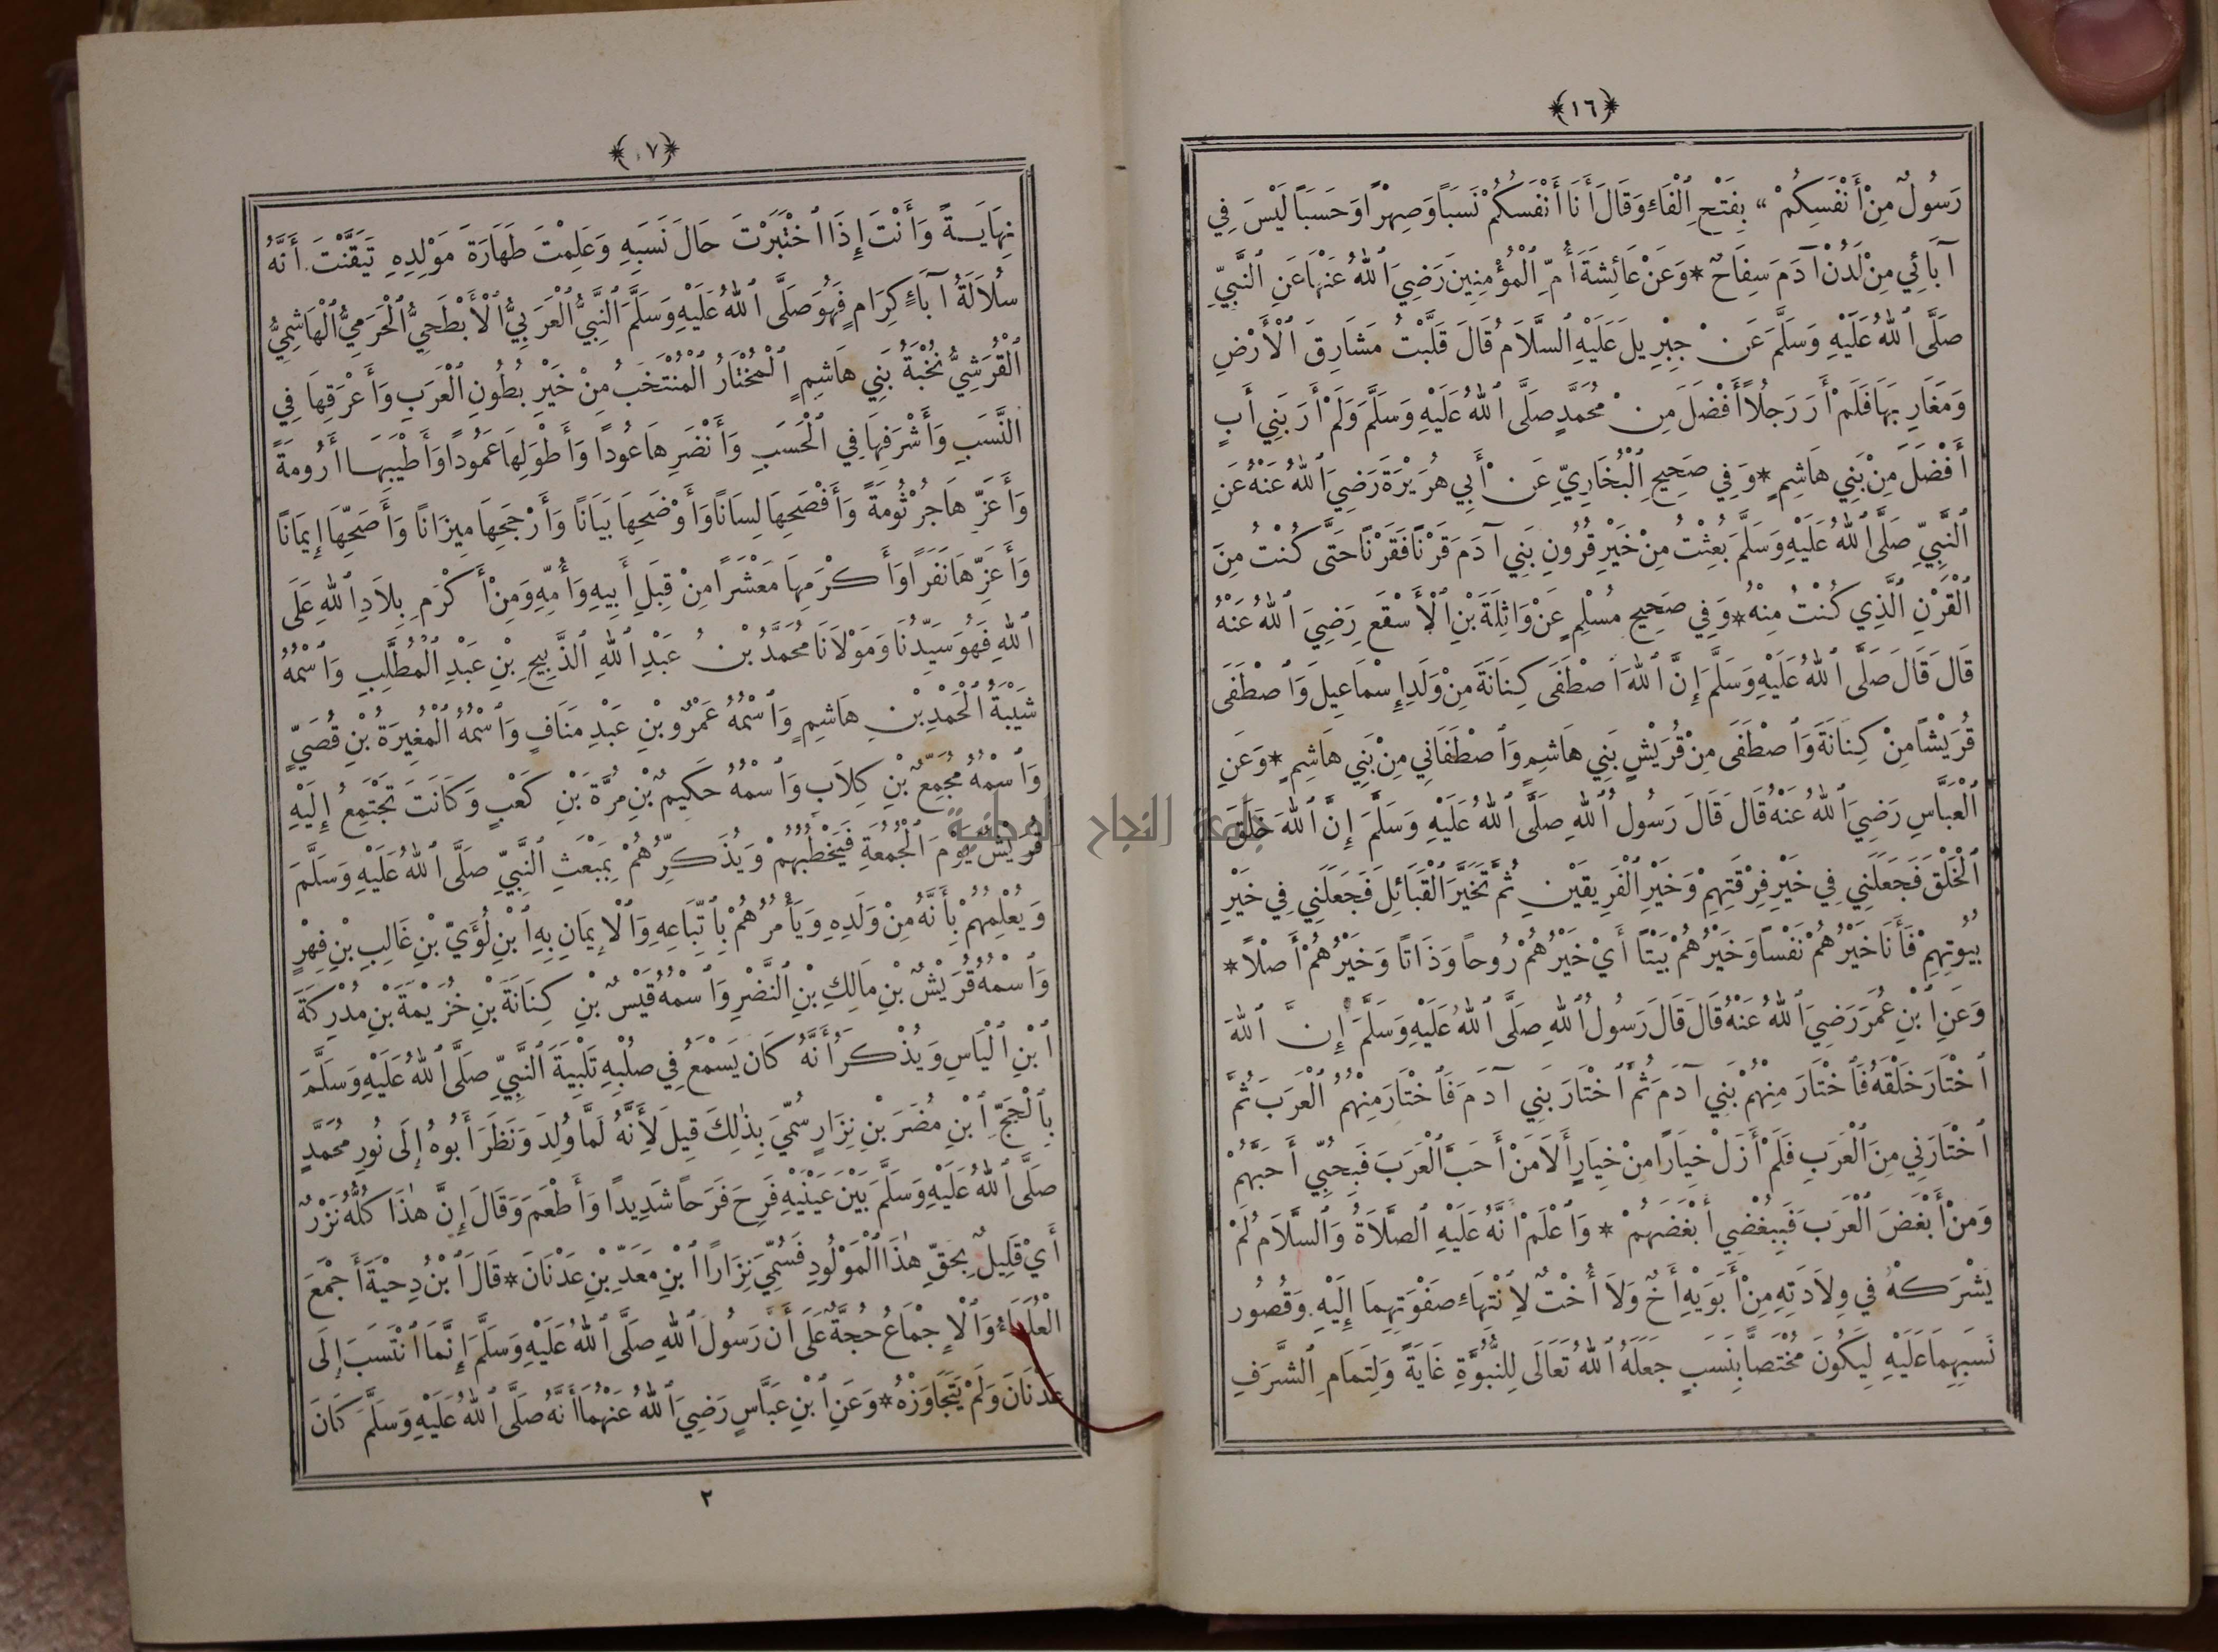 ﴿١٦﴾
رَسُولٌ مِنْ أَنْفَسِكُمْ " بِفَتْحِ ٱلْفَاءِ وَقَالَ أَنَا أَنْفَسُكُمْ نَسَبًا وَصِهْرًا وَحَسَبًا لَيْسَ فِي
آبَائِي مِنْ لَدُنْ آدَمَ سِفَاحٌ * وَعَنْ عَائِشَةَ أُمِّ ٱلْمُؤْمِنِينَ رَضِيَ ٱللهُ عَنْهَا عَنِ ٱلنَّبِيِّ
صَلَّى ٱللهُ عَلَيْهِ وَسَلَّمَ عَنْ جِبْرِيلَ عَلَيْهِ ٱلسَّلَامُ قَالَ قَلَّبْتُ مَشَارِقَ ٱلْأَرْضِ
وَمَغَارِبَهَا فَلَمْ أَرَ رَجُلًا أَفْضَلَ مِنْ مُحَمَّدٍ صَلَّى ٱللهُ عَلَيْهِ وَسَلَّمَ وَلَمْ أَرَ بَنِي أَبٍ
أَفْضَلَ مِنْ بَنِي هَاشِمٍ * وَفِي صَحِيحِ ٱلْبُخَارِيِّ عَنْ أَبِي هُرَيْرَةَ رَضِيَ ٱللهُ عَنْهُ عَنِ
ٱلنَّبِيِّ صَلَّى ٱللهُ عَلَيْهِ وَسَلَّمَ بُعِثْتُ مِنْ خَيْرِ قُرُونِ بَنِي آدَمَ قَرْنًا فَقَرْنًا حَتَّى كُنْتُ مِنَ
ٱلْقَرْنِ ٱلَّذِي كُنْتُ مِنْهُ * وَفِي صَحِيحِ مُسْلِمٍ عَنْ وَاثِلَةَ بْنِ ٱلْأَسْقَعِ رَضِيَ ٱللهُ عَنْهُ
قَالَ قَالَ صَلَّى ٱللهُ عَلَيْهِ وَسَلَّمَ إِنَّ ٱللهَ ٱصْطَفَى كِنَانَةَ مِنْ وَلَدِ إِسْمَاعِيلَ وَٱصْطَفَى
قُرَيْشًا مِنْ كِنَانَةَ وَٱصْطَفَى مِنْ قُرَيْشٍ بَنِي هَاشِمٍ وَٱصْطَفَانِي مِنْ بَنِي هَاشِمٍ * وَعَنِ
ٱلْعَبَّاسِ رَضِيَ ٱللهُ عَنْهُ قَالَ قَالَ رَسُولُ ٱللهِ صَلَّى ٱللهُ عَلَيْهِ وَسَلَّمَ إِنَّ ٱللهَ خَلَقَ
ٱلْخَلْقَ فَجَعَلَنِي فِي خَيْرِ فِرْقَتِهِمْ وَخَيْرِ ٱلْفَرِيقَيْنِ ثُمَّ تَخَيَّرَ ٱلْقَبَائِلَ فَجَعَلَنِي فِي خَيْرِ
بُيُوتِهِمْ فَأَنَا خَيْرُهُمْ نَفْسًا وَخَيْرُهُمْ بَيْتًا أَيْ خَيْرُهُمْ رُوحًا وَذَاتًا وَخَيْرُهُمْ أَصْلًا *
وَعَنِ ٱبْنِ عُمَرَ رَضِيَ ٱللهُ عَنْهُ قَالَ قَالَ رَسُولُ ٱللهِ صَلَّى ٱللهُ عَلَيْهِ وَسَلَّمَ إِنَّ ٱللهَ
ٱخْتَارَ خَلْقَهُ فَٱخْتَارَ مِنْهُمْ بَنِي آدَمَ ثُمَّ ٱخْتَارَ بَنِي آدَمَ فَٱخْتَارَ مِنْهُمُ ٱلْعَرَبَ ثُمَّ
ٱخْتَارَنِي مِنَ ٱلْعَرَبِ فَلَمْ أَزَلْ خِيَارًا مِنْ خِيَارٍ أَلَا مَنْ أَحَبَّ ٱلْعَرَبَ فَبِحُبِّي أَحَبَّهُمْ
وَمَنْ أَبْغَضَ ٱلْعَرَبَ فَبِبُغْضِي أَبْغَضَهُمْ * وَٱعْلَمْ أَنَّهُ عَلَيْهِ ٱلصَّلَاةُ وَٱلسَّلَامُ لَمْ
يَشْرَكْهُ فِي وِلَادَتِهِ مِنْ أَبَوَيْهِ أَخٌ وَلَا أُخْتٌ لِٱنْتِهَاءِ صَفْوَتِهِمَا إِلَيْهِ وَقُصُورِ
نَسَبِهِمَا عَلَيْهِ لِيَكُونَ مُخْتَصًّا بِنَسَبٍ جَعَلَهُ ٱللهُ تَعَالَى لِلنُّبُوَّةِ غَايَةً وَلِتَمَامِ ٱلشَّرَفِ
﴿١٧﴾
نِهَايَةً وَأَنْتَ إِذَا ٱخْتَبَرْتَ حَالَ نَسَبِهِ وَعَلِمْتَ طَهَارَةَ مَوْلِدِهِ تَيَقَّنْتَ أَنَّهُ
سُلَالَةُ آبَاءٍ كِرَامٍ فَهُوَ صَلَّى ٱللهُ عَلَيْهِ وَسَلَّمَ ٱلنَّبِيُّ ٱلْعَرَبِيُّ ٱلْأَبْطَحِيُّ ٱلْحَرَمِيُّ ٱلْهَاشِمِيُّ
ٱلْقُرَشِيُّ نُخْبَةُ بَنِي هَاشِمٍ ٱلْمُخْتَارُ ٱلْمُنْتَخَبُ مِنْ خَيْرِ بُطُونِ ٱلْعَرَبِ وَأَعْرَقِهَا فِي
ٱلنَّسَبِ وَأَشْرَفِهَا فِي ٱلْحَسَبِ وَأَنْضَرِهَا عُودًا وَأَطْوَلِهَا عَمُودًا وَأَطْيَبِهَا أَرُومَةً
وَأَعَزِّهَا جُرْثُومَةً وَأَفْصَحِهَا لِسَانًا وَأَوْضَحِهَا بَيَانًا وَأَرْجَحِهَا مِيزَانًا وَأَصَحِّهَا إِيمَانًا
وَأَعَزِّهَا نَفَرًا وَأَكْرَمِهَا مَعْشَرًا مِنْ قِبَلِ أَبِيهِ وَأُمِّهِ وَمِنْ أَكْرَمِ بِلَادِ ٱللهِ عَلَى
ٱللهِ فَهُوَ سَيِّدُنَا وَمَوْلَانَا مُحَمَّدُ بْنُ عَبْدِ ٱللهِ ٱلذَّبِيحِ بْنِ عَبْدِ ٱلْمُطَّلِبِ وَٱسْمُهُ
شَيْبَةُ ٱلْحَمْدِ بْنِ هَاشِمٍ وَٱسْمُهُ عَمْرُو بْنِ عَبْدِ مَنَافٍ وَٱسْمُهُ ٱلْمُغِيرَةُ بْنِ قُصَيٍّ
وَٱسْمُهُ مُجَمِّعٌ بْنِ كِلَابٍ وَٱسْمُهُ حَكِيمٌ بْنِ مُرَّةَ بْنِ كَعْبٍ وَكَانَتَ تَجْتَمِعُ إِلَيْهِ
قُرَيْشٌ يَوْمَ ٱلْجُمُعَةِ فَيَخْطُبُهُمْ وَيُذَكِّرُهُمْ بِمَبْعَثِ ٱلنَّبِيِّ صَلَّى ٱللهُ عَلَيْهِ وَسَلَّمَ
وَيُعْلِمُهُمْ بِأَنَّهُ مِنْ وَلَدِهِ وَيَأْمُرُهُمْ بِٱتِّبَاعِهِ وَٱلْإِيمَانِ بِهِ ٱبْنِ لُؤَيِّ بْنِ غَالِبِ بْنِ فِهْرٍ
وَٱسْمُهُ قُرَيْشٌ بْنِ مَالِكِ بْنِ ٱلنَّضْرِ وَٱسْمُهُ قَيْسٌ بْنِ كِنَانَةَ بْنِ خُزَيْمَةَ بْنِ مُدْرِكَةَ
ٱبْنِ ٱلْيَاسِ وَيُذْكَرُ أَنَّهُ كَانَ يَسْمَعُ فِي صُلْبِهِ تَلْبِيَةَ ٱلنَّبِيِّ صَلَّى ٱللهُ عَلَيْهِ وَسَلَّمَ
بِٱلْحَجِّ ٱبْنِ مُضَرَ بْنِ نِزَارٍ سُمِّيَ بِذٰلِكَ قِيلَ لِأَنَّهُ لَمَّا وُلِدَ وَنَظَرَ أَبُوهُ إِلَى نُورِ مُحَمَّدٍ
صَلَّى ٱللهُ عَلَيْهِ وَسَلَّمَ بَيْنَ عَيْنَيْهِ فَرِحَ فَرَحًا شَدِيدًا وَأَطْعَمَ وَقَالَ إِنَّ هٰذَا كُلُّهُ نَزْرٌ
أَيْ قَلِيلٌ بِحَقِّ هٰذَا ٱلْمَوْلُودِ فَسُمِّيَ نِزَارًا ٱبْنِ مَعَدِّ بْنِ عَدْنَانَ * قَالَ ٱبْنُ دِحْيَةَ أَجْمَعَ
ٱلْعُلَمَاءُ وَٱلْإِجْمَاعُ حُجَّةٌ عَلَى أَنَّ رَسُولَ ٱللهِ صَلَّى ٱللهُ عَلَيْهِ وَسَلَّمَ إِنَّمَا ٱنْتَسَبَ إِلَى
عَدْنَانَ وَلَمْ يَتَجَاوَزْهُ * وَعَنِ ٱبْنِ عَبَّاسٍ رَضِيَ ٱللهُ عَنْهُمَا أَنَّهُ صَلَّى ٱللهُ عَلَيْهِ وَسَلَّمَ كَانَ
٢
جامعة النجاح الوطنية